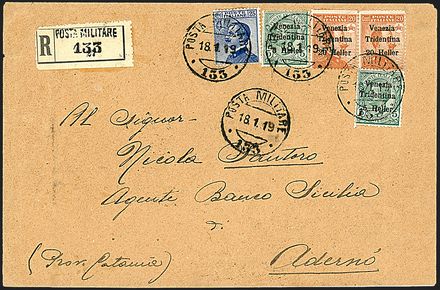 R
POSTA MILITARE
133
POSTA MILITARE
18.1.19
133
POSTA MILITARE
18.1.19
133
Venezia
Tridentina
Venezia
Tridentina
20 Heller
Venezia
Tridentina
20 Heller
Venezia
Tridentina
5 Heller
5
POSTA MILITARE
18.1.19
133
Al Signor-
Nicola Santoro
Agente Banco Sicilia
Adernò
(Prov. Catania)